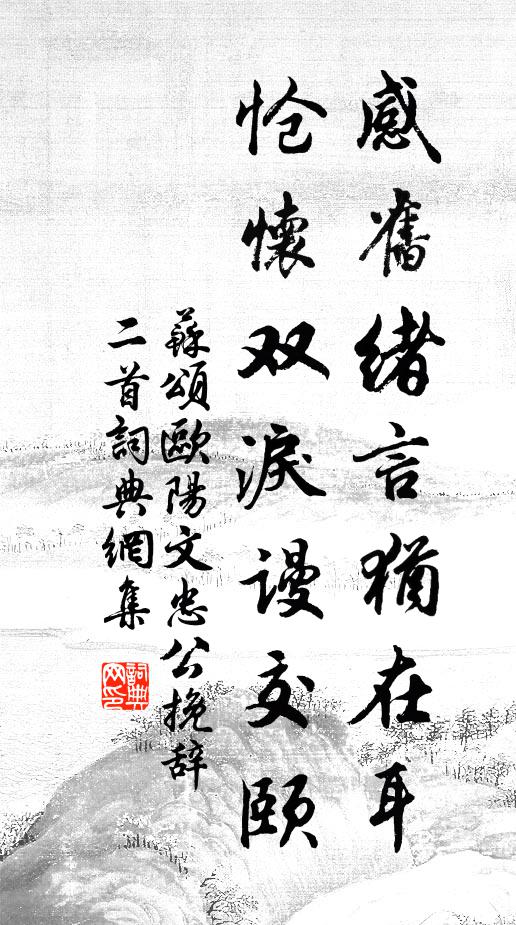 感舊緒言猶在耳
怆懷双淚谩交頤
蘇頌歐陽文忠公挽辞
二首詞典網集
詞典
网印